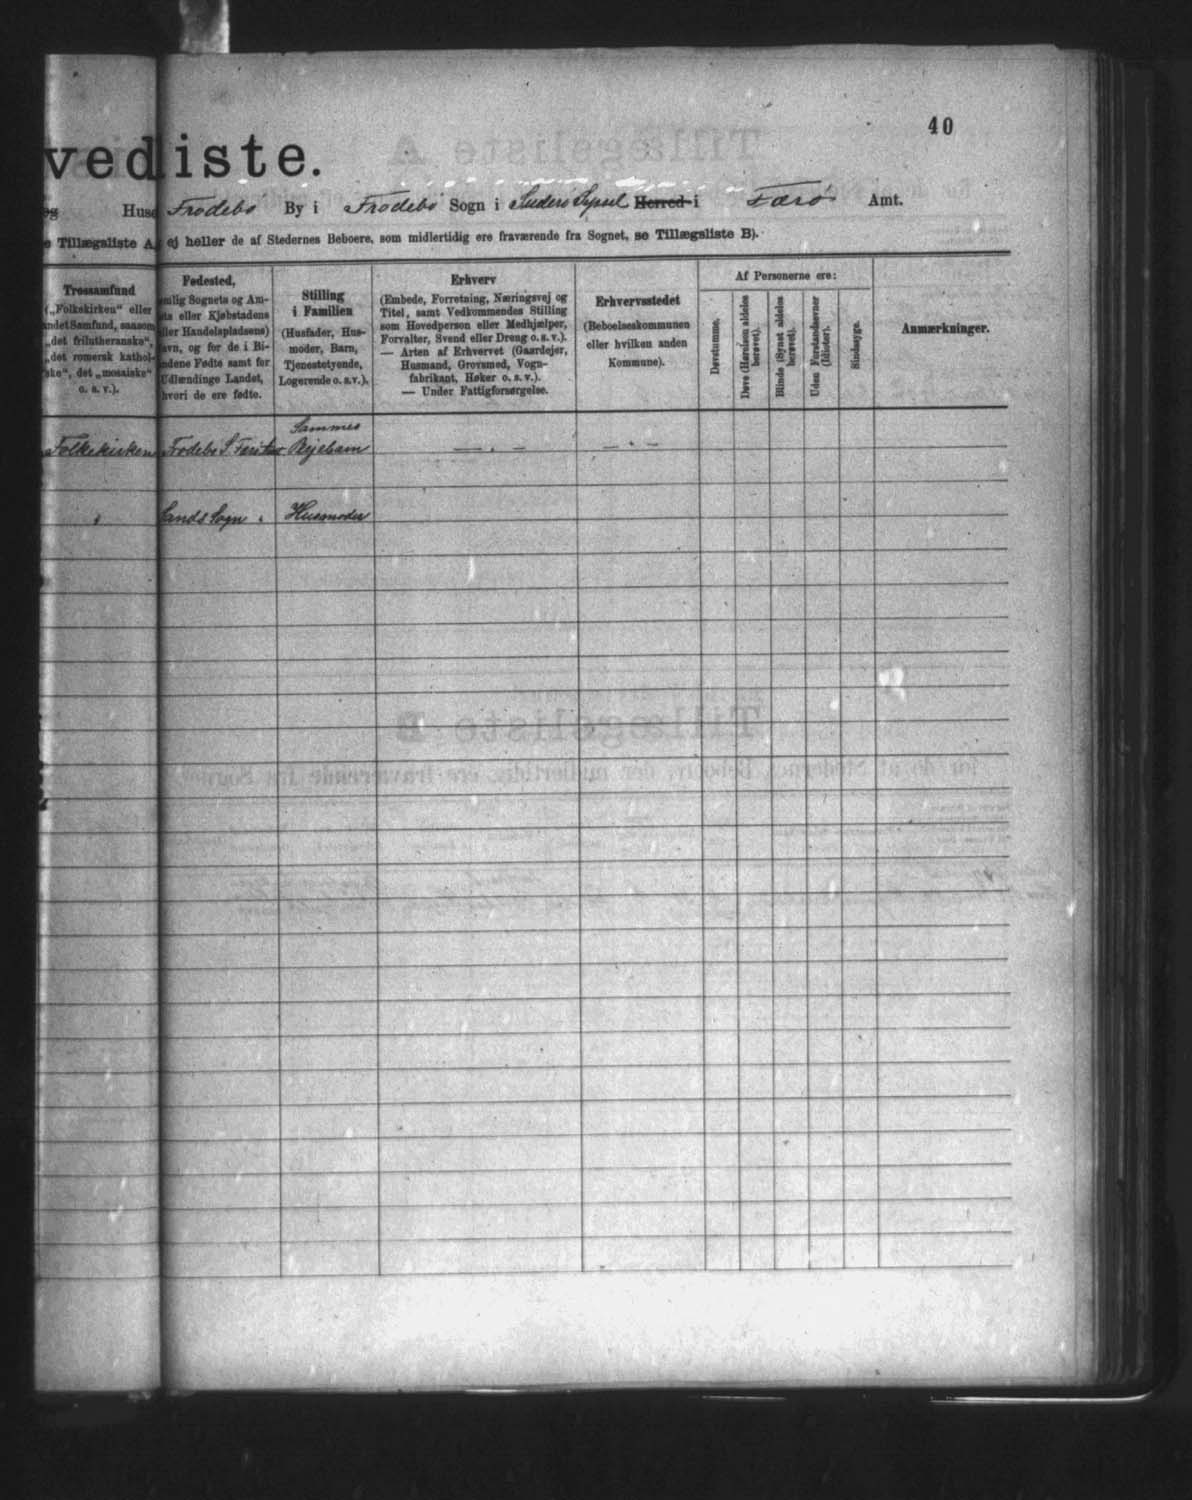 40
vedliste.
og Huse Frodebø By i Frodebø Sogn i Suderø Syssel Herred i Færø Amt.
e Tillægsliste A, ej heller de af Stedernes Beboere, som midlertidig ere fraværende fra Sognet, se Tillægsliste B).
Trossamfund
(„Folkekirken“ eller
andet Samfund, saasom
„det frilutheranske“,
„det romersk kathol-
ske“, det „mosaiske“
o. s. v.).
Fødested,
nemlig Sognets og Am-
ts eller Kjøbstadens
eller Handelspladsens)
avn, og for de i Bi-
ndene Fødte samt for
Udlændinge Landet,
hvori de ere fødte.
Stilling
i Familien
(Husfader, Hus-
moder, Barn,
Tjenestetyende,
Logerende o. s. v.).
Erhverv
(Embede, Forretning, Næringsvej og
Titel, samt Vedkommendes Stilling
som Hovedperson eller Medhjælper,
Forvalter, Svend eller Dreng o. s. v.).
— Arten af Erhvervet (Gaardejer,
Husmand, Grovsmed, Vogn-
fabrikant, Høker o. s. v.).
— Under Fattigforsørgelse.
Erhvervsstedet
(Beboelseskommunen
eller hvilken anden
Kommune).
Af Personerne ere:
Døvstumme.
Døve (Hørelsen aldeles
berøvet).
Blinde (Synet aldeles
berøvet).
Uden Forstandsevner
(Idioter).
Sindssyge.
Anmærkninger.
Sammes
Folkekirken Frodebø S. Plejebarn — „ — — „ —
„ Sands Sogn „ Husmoder
Tillægsliste A
Tillægsliste B
for de af Stedernes Beboere, der midlertidig ere fraværende fra Sognet.